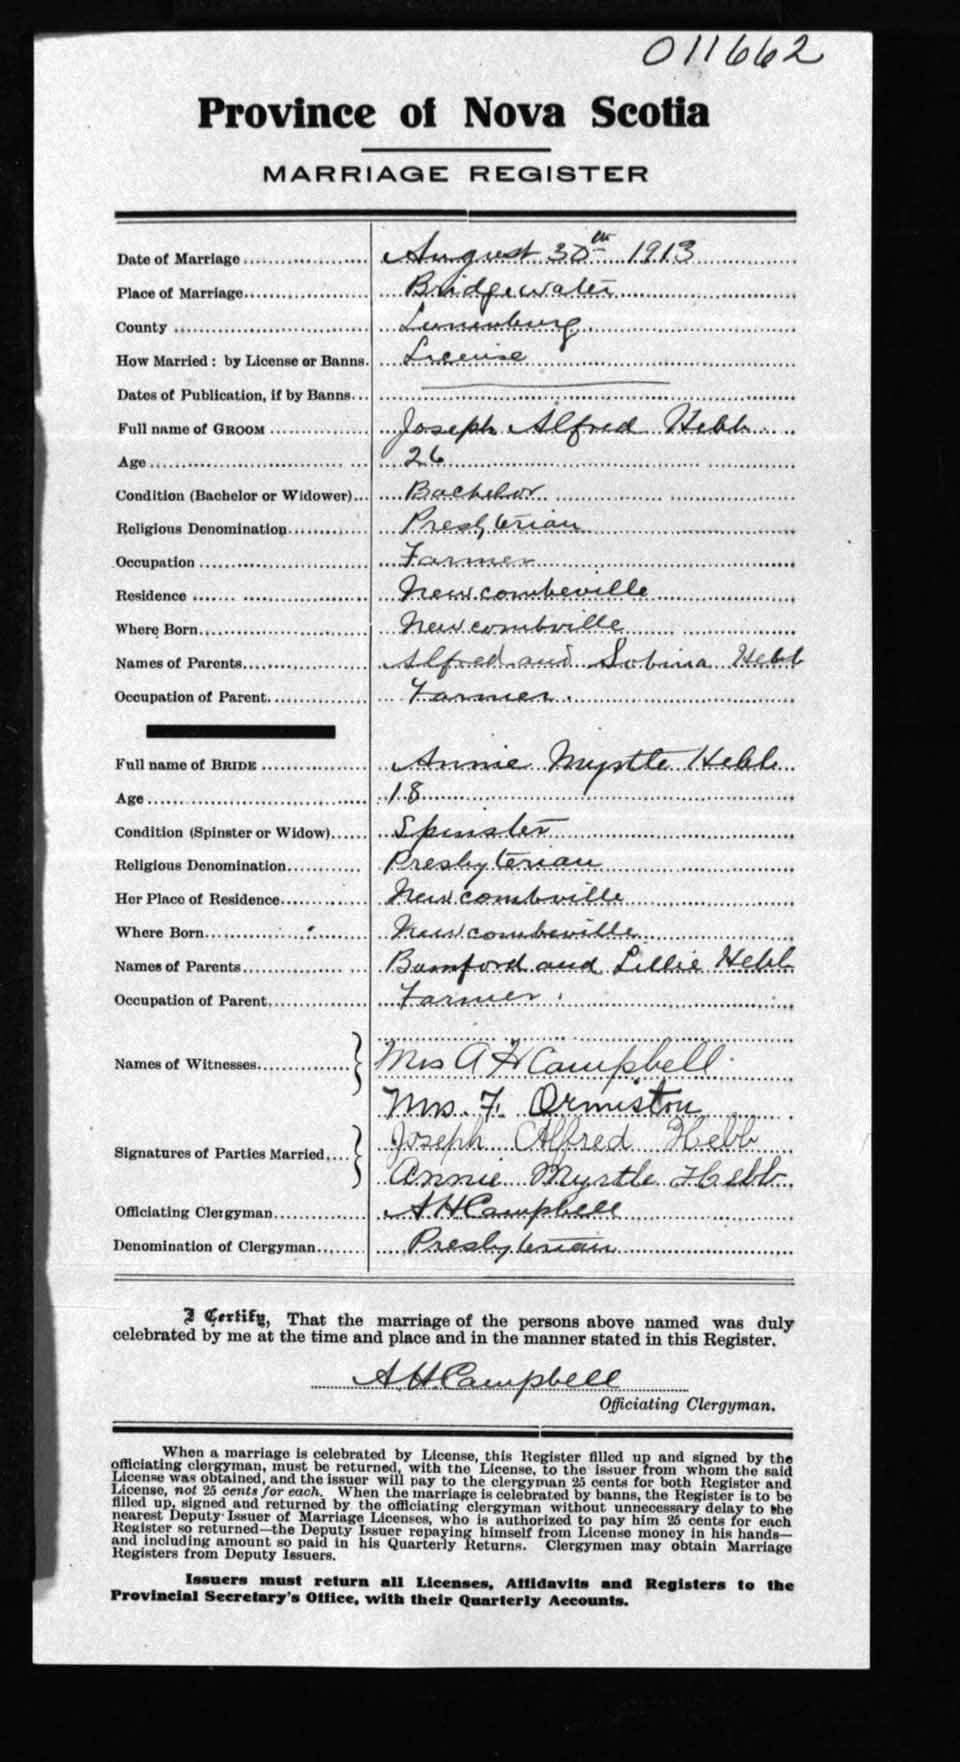 011662
Province of Nova Scotia
MARRIAGE REGISTER
Date of Marriage August 30th 1913
Place of Marriage Bridgewater
County Lunenburg
How Married: by License or Banns. License
Dates of Publication, if by Banns
Full name of GROOM Joseph Alfred Hebb
Age 26
Condition (Bachelor or Widower) Bachelor
Religious Denomination Presbyterian
Occupation Farmer
Residence Newcombeville
Where Born Newcombville
Names of Parents Alfred and Sobina Hebb
Occupation of Parent Farmer.
Full name of BRIDE Annie Myrtle Hebb
Age 18
Condition (Spinster or Widow) Spinster
Religious Denomination Presbyterian
Her Place of Residence Newcombville
Where Born Newcombeville
Names of Parents Bamford and Lillie Hebb
Occupation of Parent Farmer
Names of Witnesses Mrs A H Campbell
Mrs. F. Ormiston
Signatures of Parties Married Joseph Alfred Hebb
Annie Myrtle Hebb
Officiating Clergyman A H Campbell
Denomination of Clergyman Presbyterian
I Certify, That the marriage of the persons above named was duly
celebrated by me at the time and place and in the manner stated in this Register.
A. H. Campbell
Officiating Clergyman.
When a marriage is celebrated by License, this Register filled up and signed by the
officiating clergyman, must be returned, with the License, to the issuer from whom the said
License was obtained, and the issuer will pay to the clergyman 25 cents for both Register and
License, not 25 cents for each. When the marriage is celebrated by banns, the Register is to be
filled up, signed and returned by the officiating clergyman without unnecessary delay to the
nearest Deputy Issuer of Marriage Licenses, who is authorized to pay him 25 cents for each
Register so returned—the Deputy Issuer repaying himself from License money in his hands—
and including amount so paid in his Quarterly Returns. Clergymen may obtain Marriage
Registers from Deputy Issuers.
Issuers must return all Licenses, Affidavits and Registers to the
Provincial Secretary's Office, with their Quarterly Accounts.